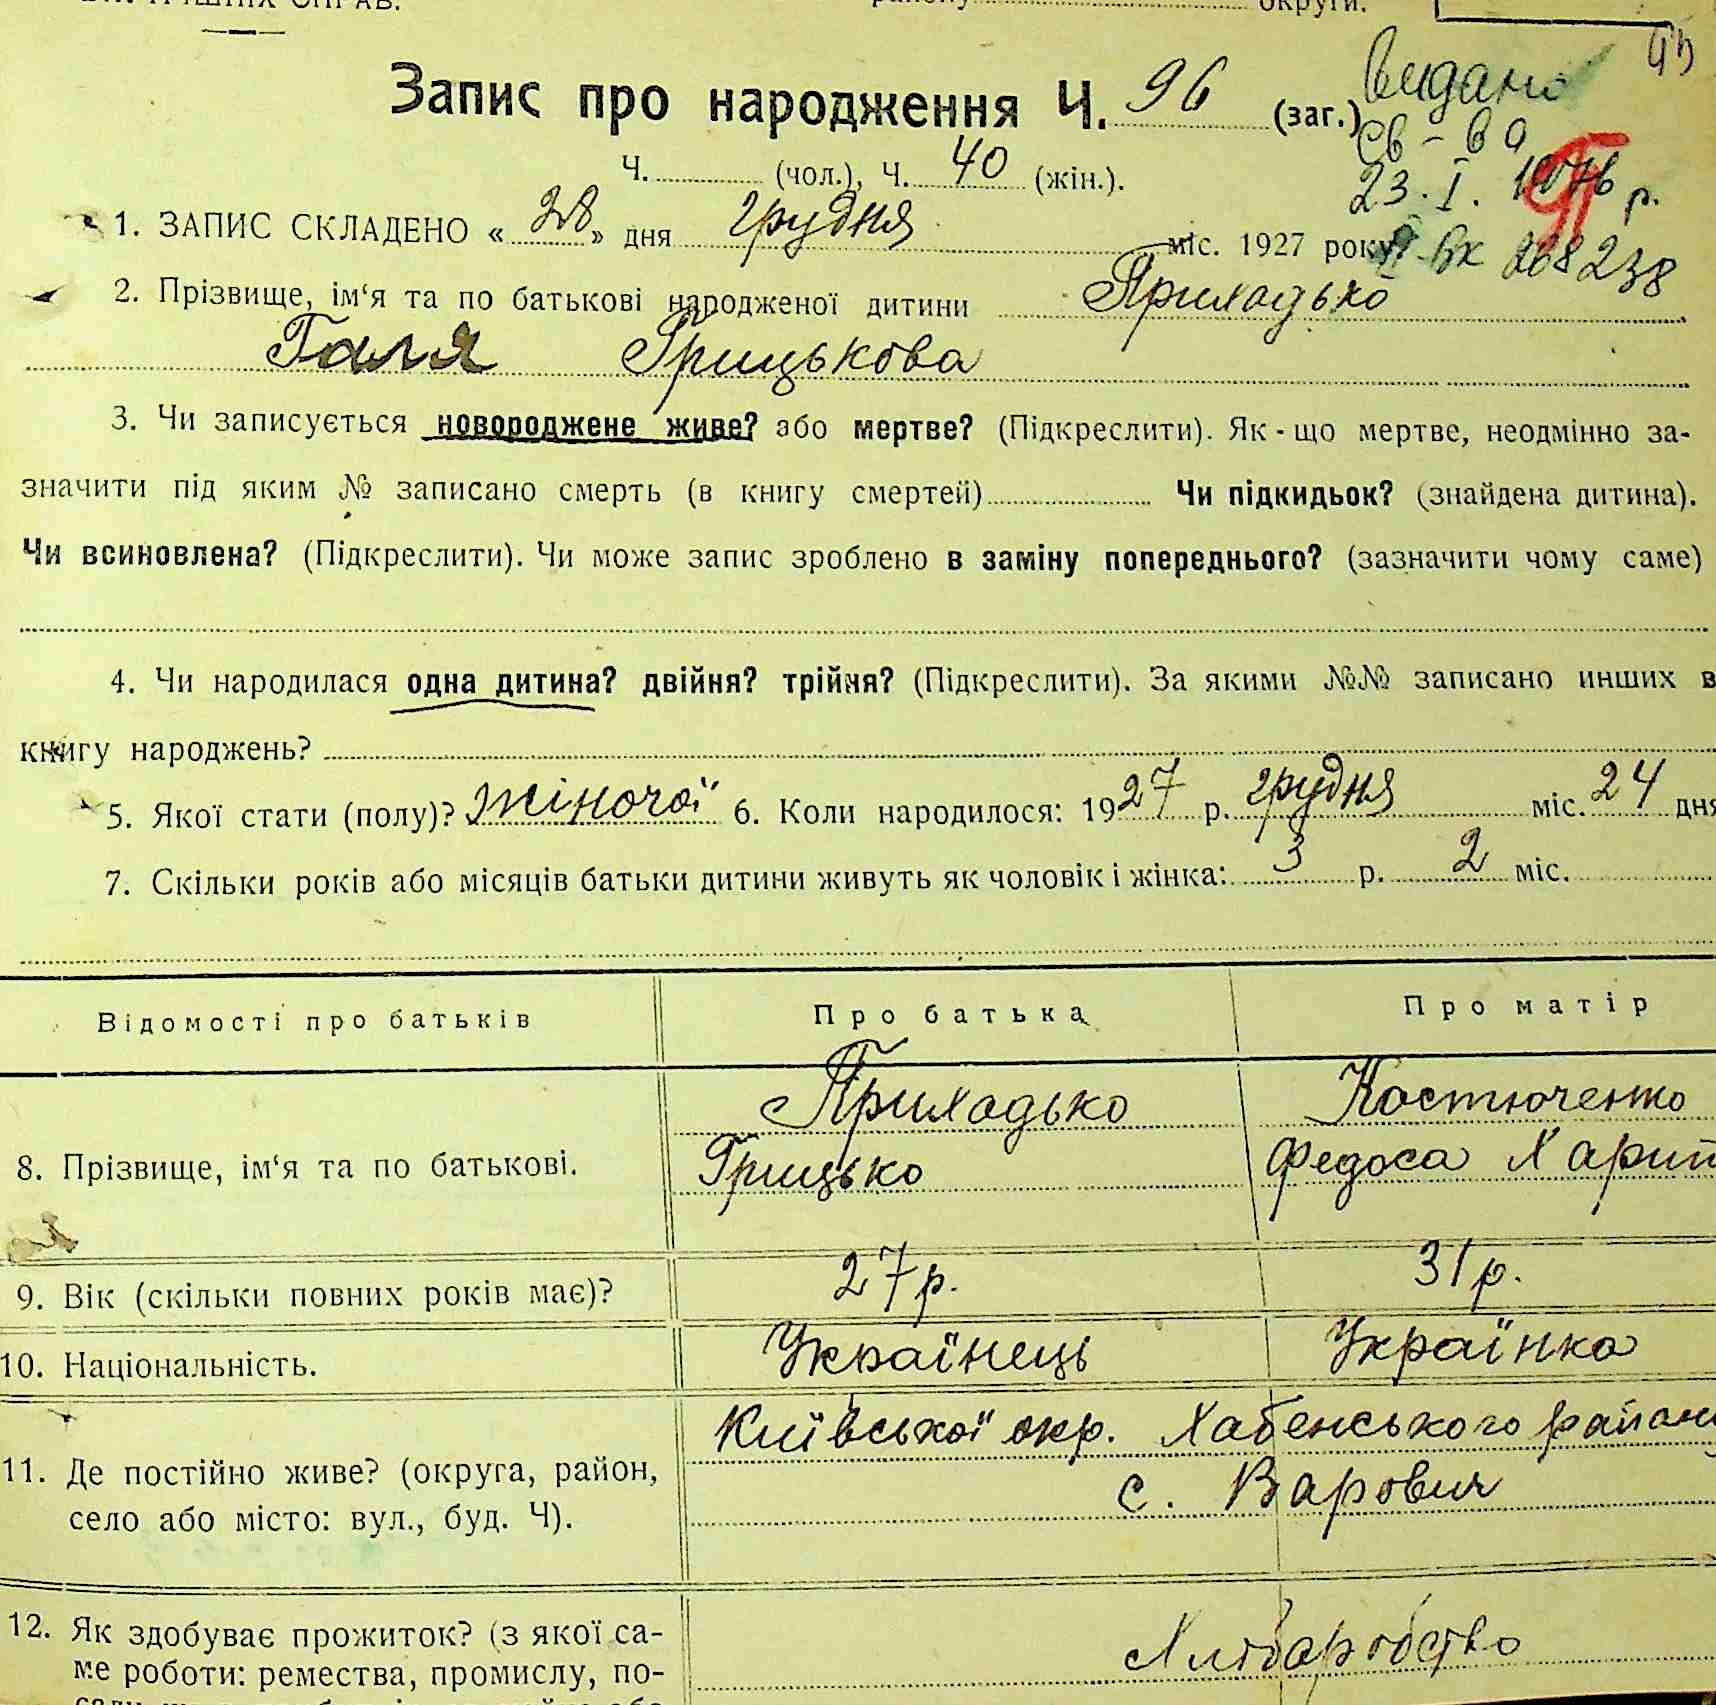 району ... округи.
Запис про народження Ч. 96 (заг.)
видано
св-во
23.I. 1976 р.
II-БК 268238
Ч. ... (чол.), Ч. 40 (жін.).
1. ЗАПИС СКЛАДЕНО «28» дня грудня міс. 1927 року
2. Прізвище, ім‘я та по батькові народженої дитини Приходько
Галя Грицькова
3. Чи записується новороджене живе? або мертве? (Підкреслити). Як-що мертве, неодмінно за-
значити під яким № записано смерть (в книгу смертей) ... Чи підкидьок? (знайдена дитина).
Чи всиновлена? (Підкреслити). Чи може запис зроблено в заміну попереднього? (зазначити чому саме)
4. Чи народилася одна дитина? двійня? трійня? (Підкреслити). За якими №№ записано инших в
книгу народжень?
5. Якої стати (полу)? жіночої 6. Коли народилося: 1927 р. грудня міс. 24 дня
7. Скільки років або місяців батьки дитини живуть як чоловік і жінка: 3 р. 2 міс.
Відомості про батьків Про батька Про матір
8. Прізвище, ім‘я та по батькові. Приходько Костюченко
Грицько Федоса Харит
9. Вік (скільки повних років має)? 27 р. 31 р.
10. Національність. Українець Українка
11. Де постійно живе? (округа, район, Київської окр. Хабенського району
село або місто: вул., буд. Ч). с. Варович
12. Як здобуває прожиток? (з якої са- Хліборобство
ме роботи: ремества, промислу, по-